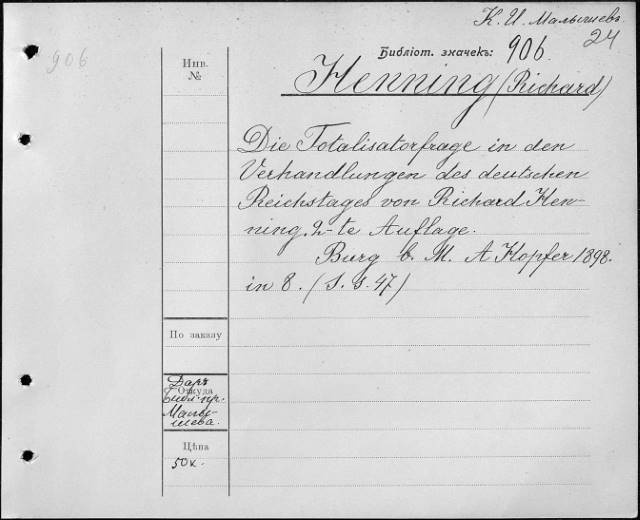 К. И. Малышевъ
24
906
Библіот. значекъ: 906
Henning (Richard)
Инв.
№
Die Totalisatorfrage in den
Verhandlungen des deutschen
Reichstages von Richard Hen-
ning. 2-te Auflage.
Burg b. M. A Hopfer 1898.
in 8. (S. S. 47)
По заказу
Откуда
Даръ
библ. пр.
Малы-
шева.
Цѣна
50 к.